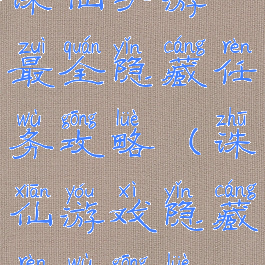 诛仙 游
zuì quán yǐn cáng rèn
最全隐藏任
wù gōng lüè zhū
务攻略（诛
xiān yóu xì yǐn cáng
仙游戏隐藏
rèn wù gōng lüè